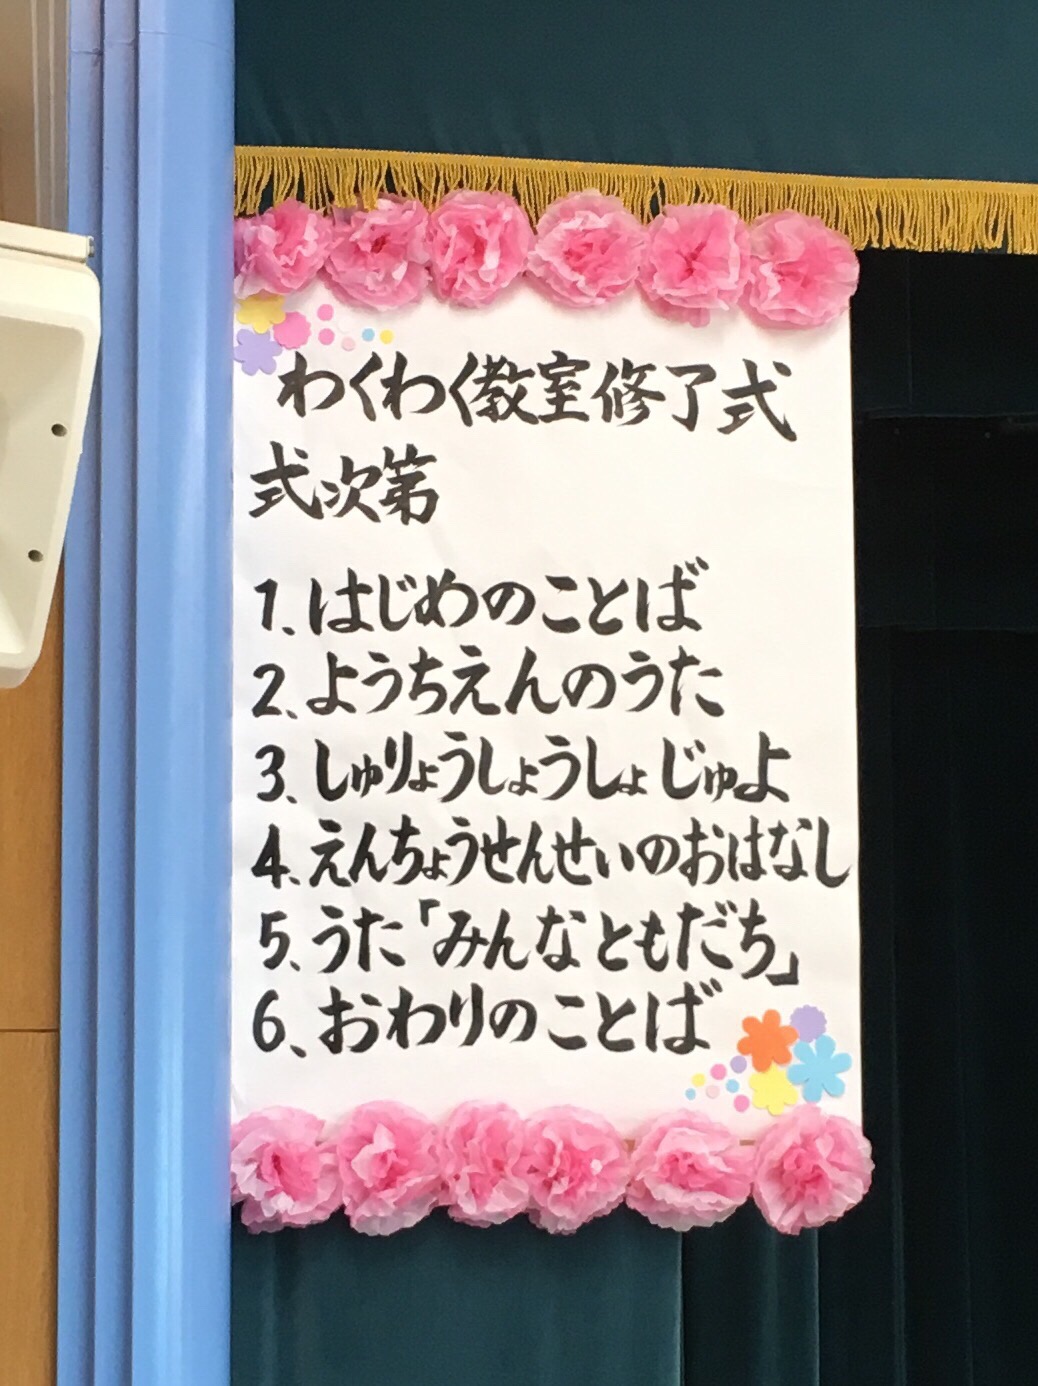 わくわく教室修了式
式次第
1、はじめのことば
2、ようちえんのうた
3、しゅりょうしょうしょ じゅよ
4、えんちょうせんせいのおはなし
5、うた「みんなともだち」
6、おわりのことば